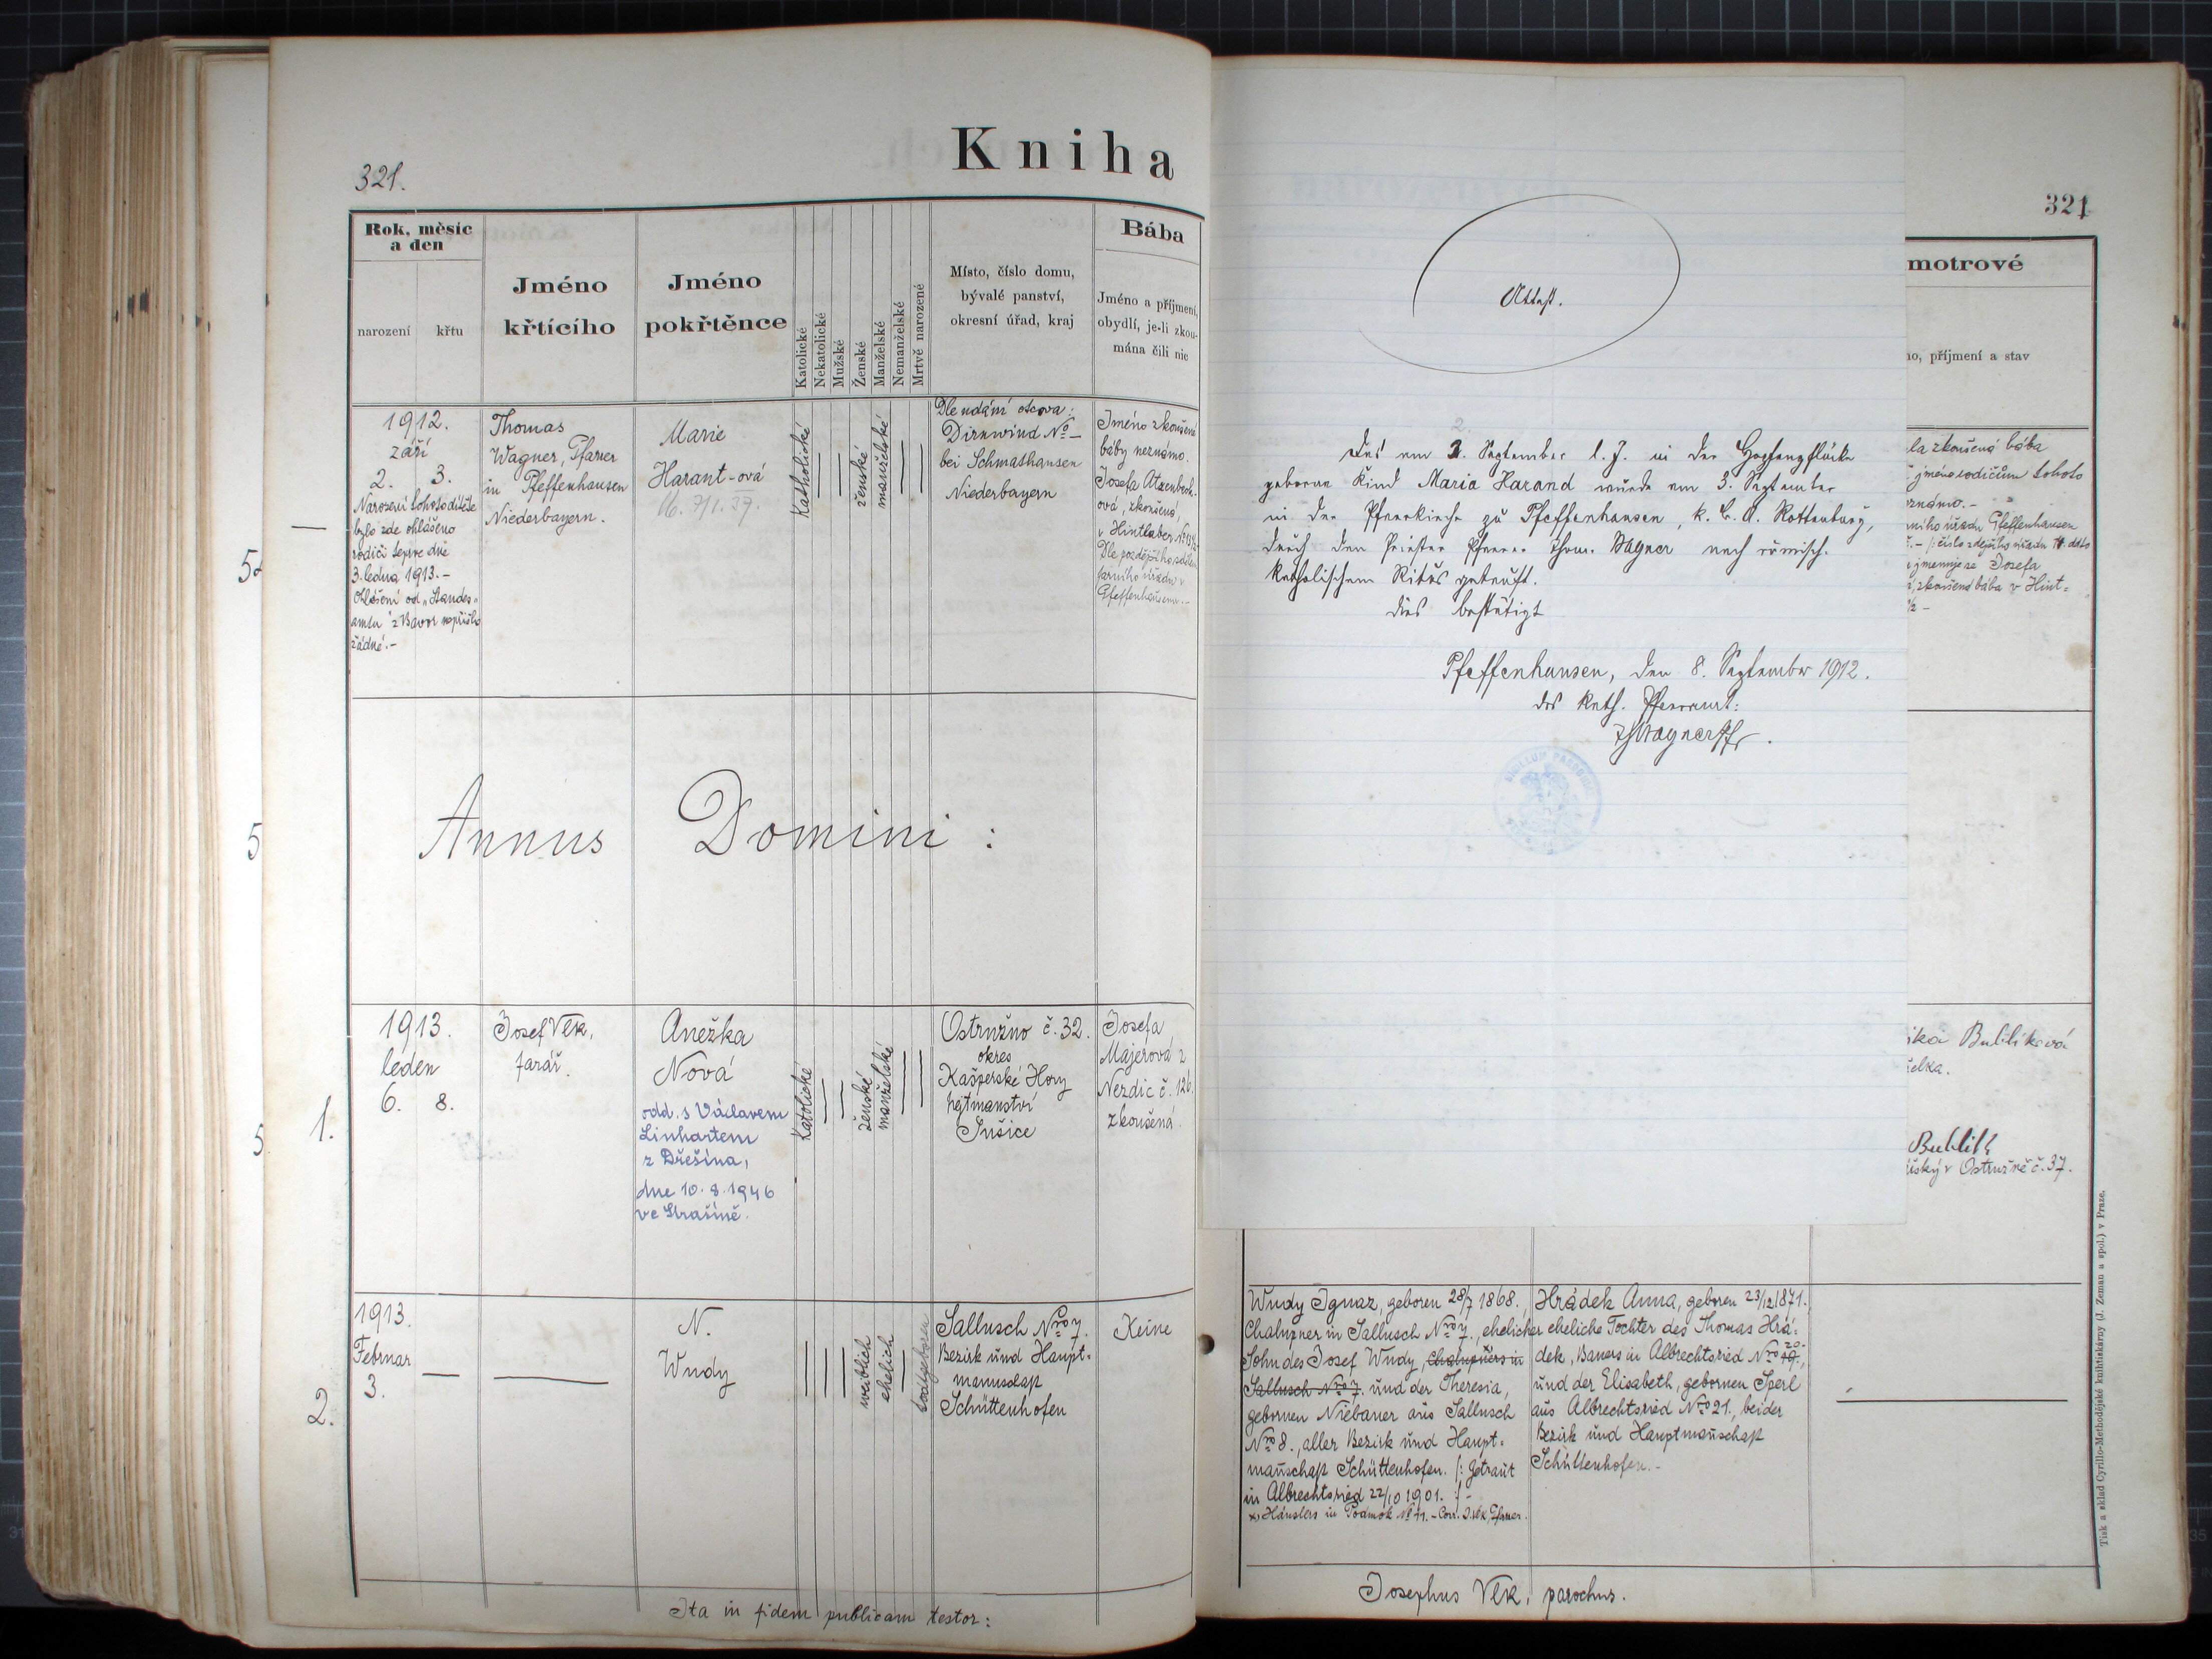 Kniha
321.
Rok, měsíc
a den
narození
křtu
Jméno
křtícího
Jméno
pokřtěnce
Katolické
Nekatolické
Mužské
Ženské
Manželské
Nemanželské
Mrtvě narozené
Místo, číslo domu,
bývalé panství,
okresní úřad, kraj
Bába
Jméno a příjmení,
obydlí, je-li zkou-
mána čili nic
1912.
září
2. 3.
Narození tohoto dítěte
bylo zde ohlášeno
rodiči teprve dne
3. ledna 1913.-
Ohlášení od „Standes-
amtu" z Bavor nepřišlo
žádné.-
Thomas
Wagner, Pfarrer
in Pfeffenhausen
Niederbayern.
Marie
Harant-ová
Katholické
ženské
manželské
Dle udání otcova:
Dirnwind No –
bei Schmatshausen
Niederbayern
Jméno zkoušené
báby neznámo.
Josefa Atzenbeck-
ová, zkoušená
farního úřadu v
Pfeffenhausenu.-
Annus Domini :
1.
1913.
leden
6. 8.
Josef Vlk,
farář.
Anežka
Nová
odd. s Václavem
Linhartem
z Dřešína,
dne 10.8.1946
ve Strašíně.
Katolické
ženské
manželské
Ostružno č. 32.
okres
Kašperské Hory
hejtmanství
Sušice
Josefa
Majerová z
Nezdic č. 126.
zkoušená.
2.
1913.
Februar
3.
N.
Wudy
weiblich
ehelich
todtgeboren
Sallusch Nro 7.
Bezirk und Haupt-
mannschaft
Schüttenhofen
Keine
Ita in fidem publicam testor:
Attest.
Das am 2. September l. J. in der Hopfenpflücke
geborene Kind Maria Harand wurde am 3. September
in der Pfarrkirche zu Pfeffenhausen, k. B. A. Rottenburg,
durch den Priester Pfarrer Thom. Wagner nach römisch-
katholischem Ritus getauft.
Dies bestätigt
Pfeffenhausen, den 8. September 1912.
Das kath. Pfarramt:
Th Wagner Pfr.
321
motrové
no, příjmení a stav
la zkoušená bába
jméno rodičům tohoto
známo.-
ního úřadu Pfeffenhausen
jmenuje se Josefa
zkoušená bába v Hint-
Bublíková
elka.
Bublík
v Ostružně č. 37.
Wudy Ignaz, geboren 28/7 1868.,
Chalupner in Sallusch Nro 7., ehelicher
Sohn des Josef Wudy, Chalupners in
Sallusch Nro 7. und der Theresia,
gebornen Niebauer aus Sallusch
Nro 8., aller Bezirk und Haupt-
manschaft Schüttenhofen. /: Getraut
in Albrechtsried 22/10 1901. :/-
x, Häuslers in Podmok No 71. - Corr. J. Vlk, Pfarrer.
Hrádek Anna, geboren 23/12 1871.,
eheliche Tochter des Thomas Hrá-
dek, Bauers in Albrechtsried Nro 19. 20.,
und der Elisabeth, gebornen Sperl
aus Albrechtsried Nro 21., beider
Bezirk und Hauptmanschaft
Schüttenhofen.-
Josephus Vlk, parochus.
Tisk a sklad Cyrillo-Methodějské knihtiskárny (J. Zeman a spol.) v Praze.